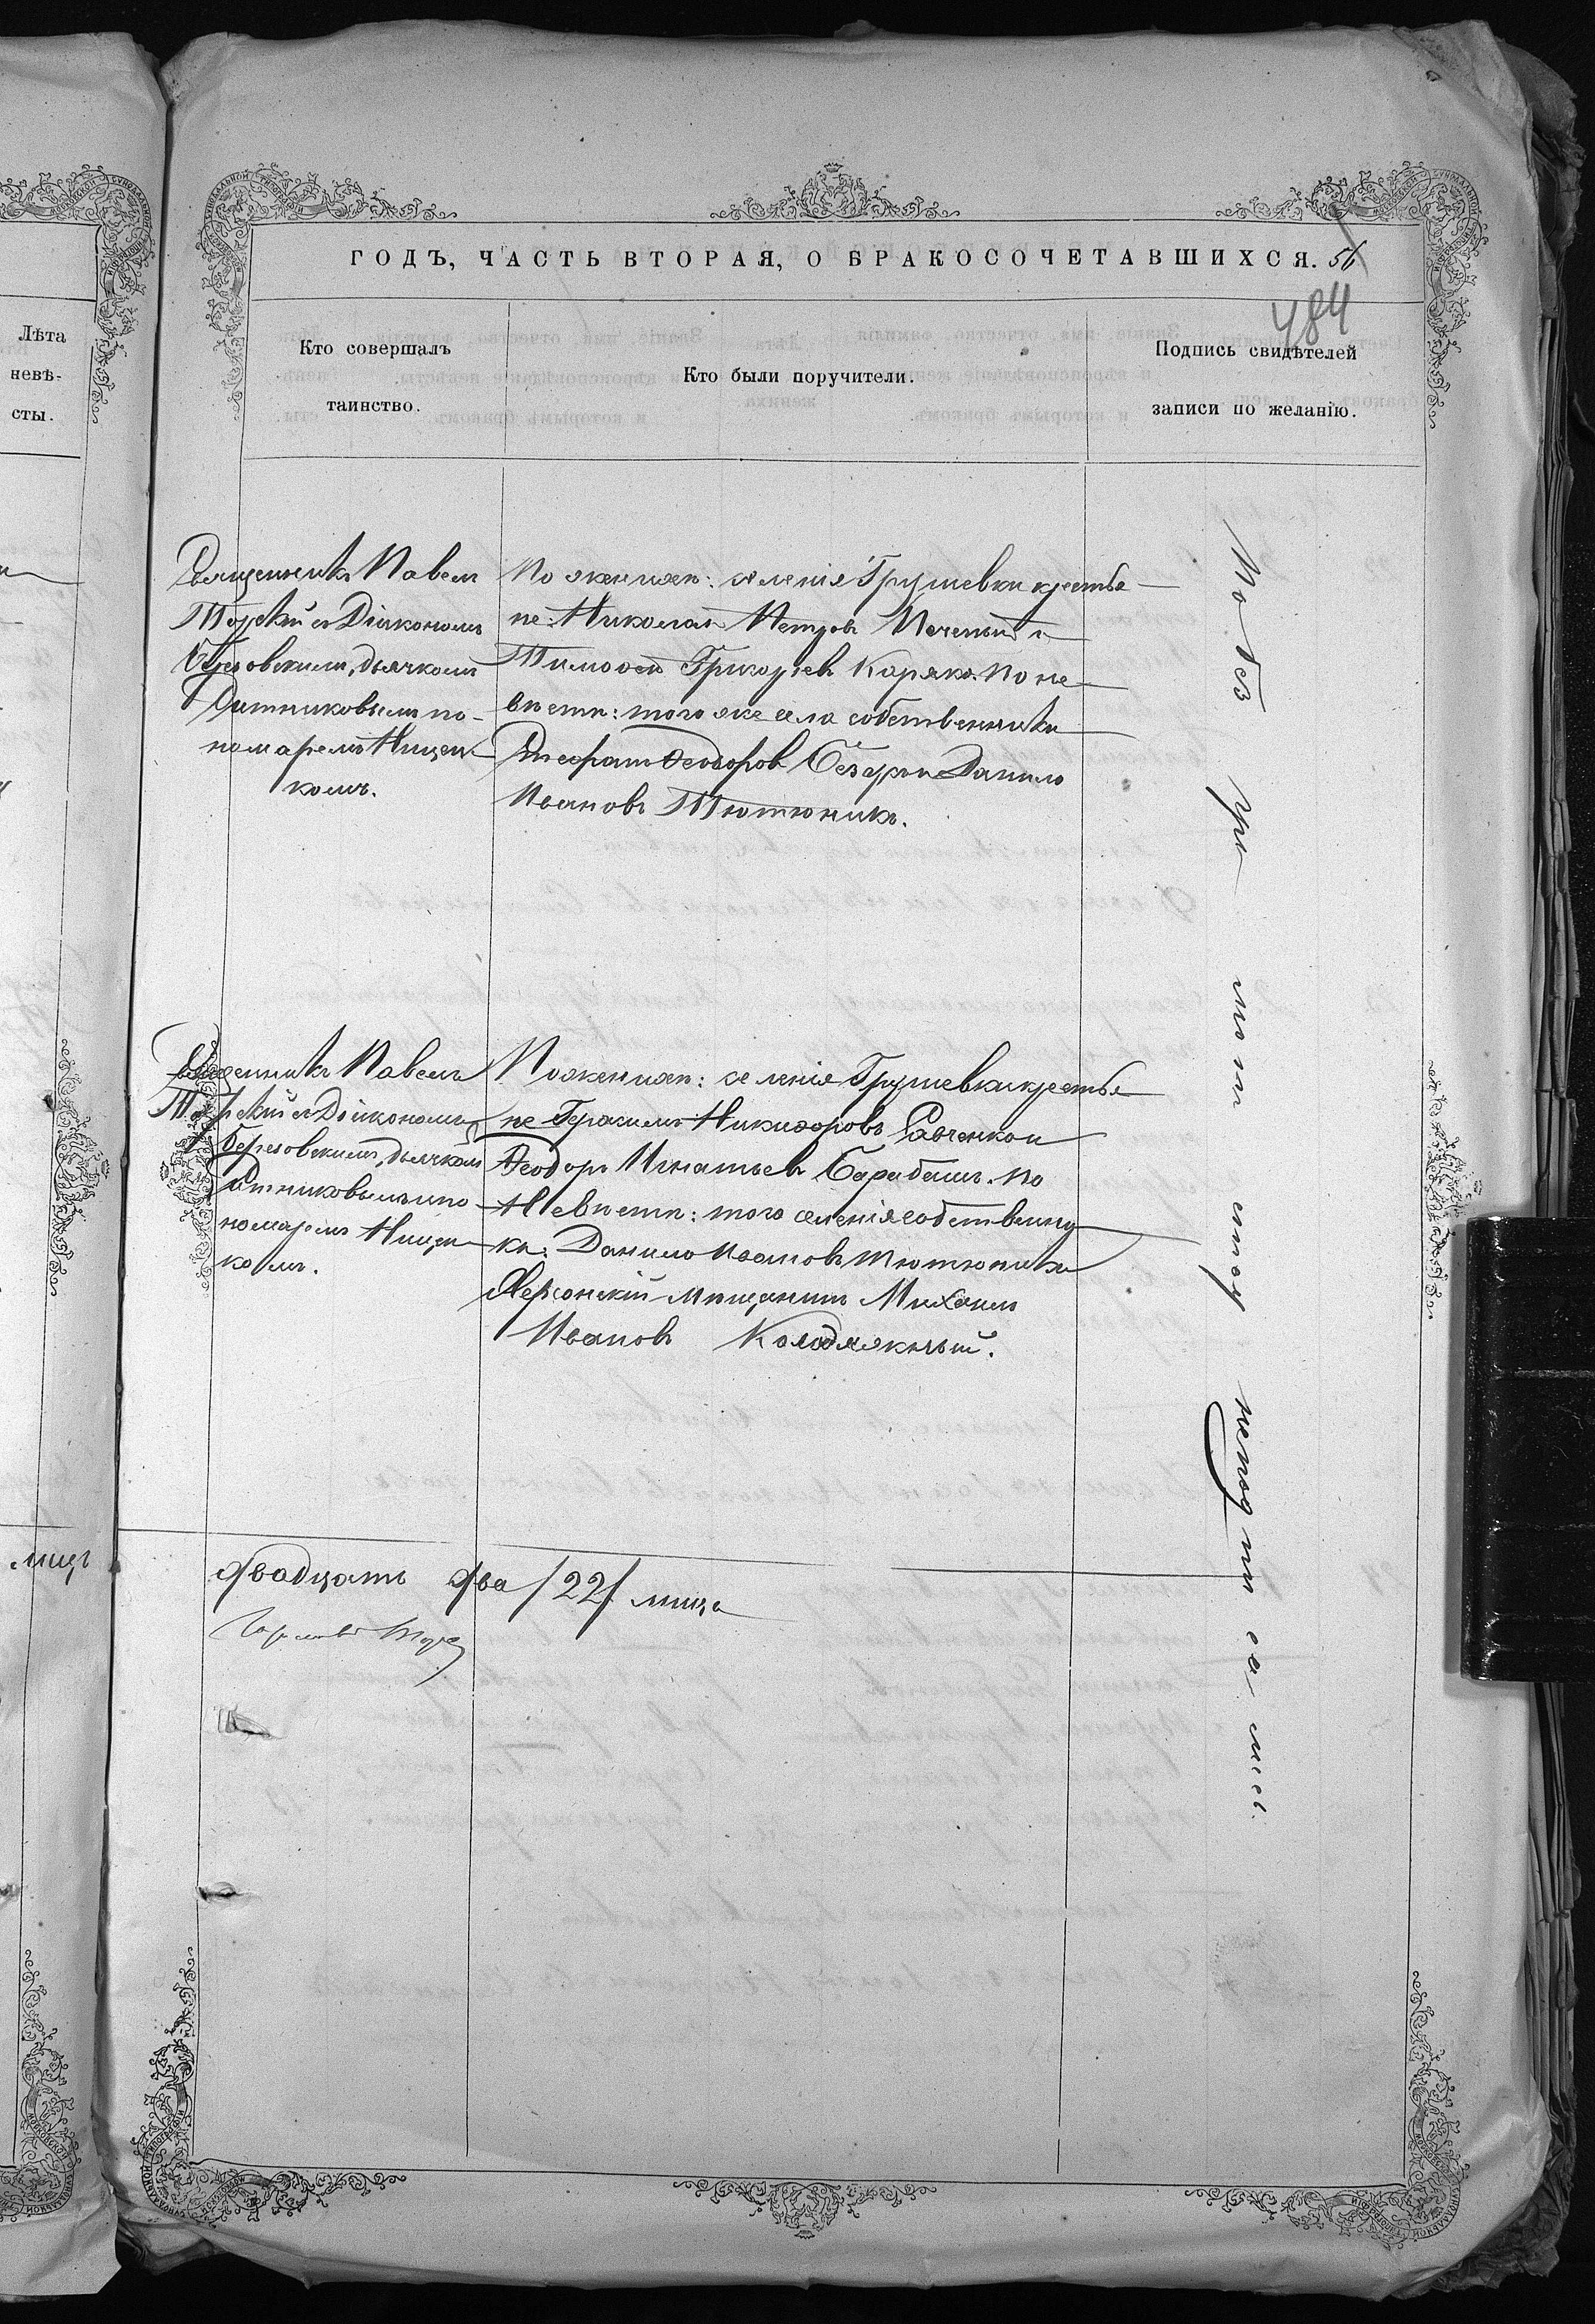 Лѣта
невѣ-
сты.
лицъ
ГОДЪ, ЧАСТЬ ВТОРАЯ, О БРАКОСОЧЕТАВШИХСЯ. 56
484
Кто совершалъ
таинство.
Кто были поручители.
Подпись свидѣтелей
записи по желанію.
Священникъ Павелъ
Торскій съ Діакономъ
Березовскимъ, дьячкомъ
Ситниковымъ по-
номаремъ Нищен-
комъ.
По женихѣ: селенія Грушевки крестья-
не: Николай Петровъ Печеный и
Тимоѳей Григорьевъ Каряка. По не-
вѣстѣ: того же села собственники
Ѳеодоровъ Данило
Ивановъ Тютюникъ.
Священникъ Павелъ
Торскій съ Діакономъ
Березовскимъ, дьячкомъ
Ситниковымъ и по
номаремъ Нищен
комъ.
По женихѣ: селенія Грушевки крестья
не Герасимъ Никифоровъ Савченко и
Ѳеодоръ Игнатьевъ Барабашъ. По
Невѣстѣ: того селенія собственни
ки: Данило Ивановъ Тютюникъ и
Херсонскій мѣщанинъ Михаилъ
Ивановъ Колодяжный.
двадцать два /22/ лица